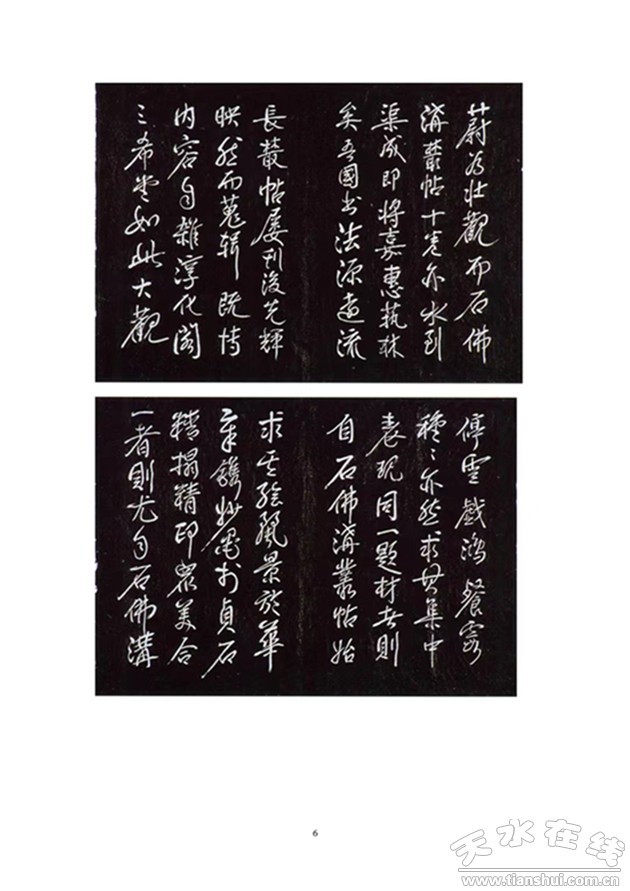 蔚為壯觀而石佛
溝叢帖十卷亦水到
渠成即將嘉惠藝林
矣吾國書法源遠流
長叢帖屢刊後先輝
映然而蒐輯既博
內容自雜淳化閣
三希堂如此大觀
停雲戲鴻餐霞
種〻亦然求其集中
表現同一題材者則
自石佛溝叢帖始
求其繪風景於華
章鐫妙墨於貞石
精搨精印眾美合
一者則尤自石佛溝
6
天水在线
www.tianshui.com.cn